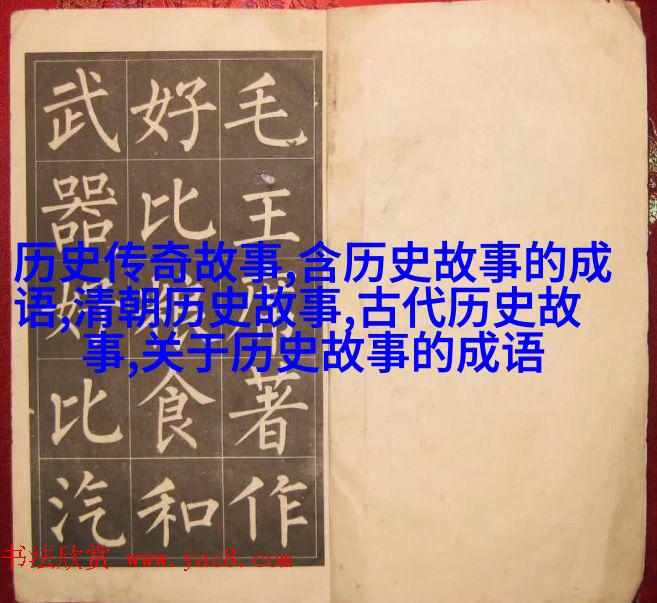 毛主席著作
好比粮食和
武器好比汽
历史传奇故事,含历史故事的成
语,清朝历史故事,古代历史故
事,关于历史故事的成语
书法欣赏 www.yac8.com